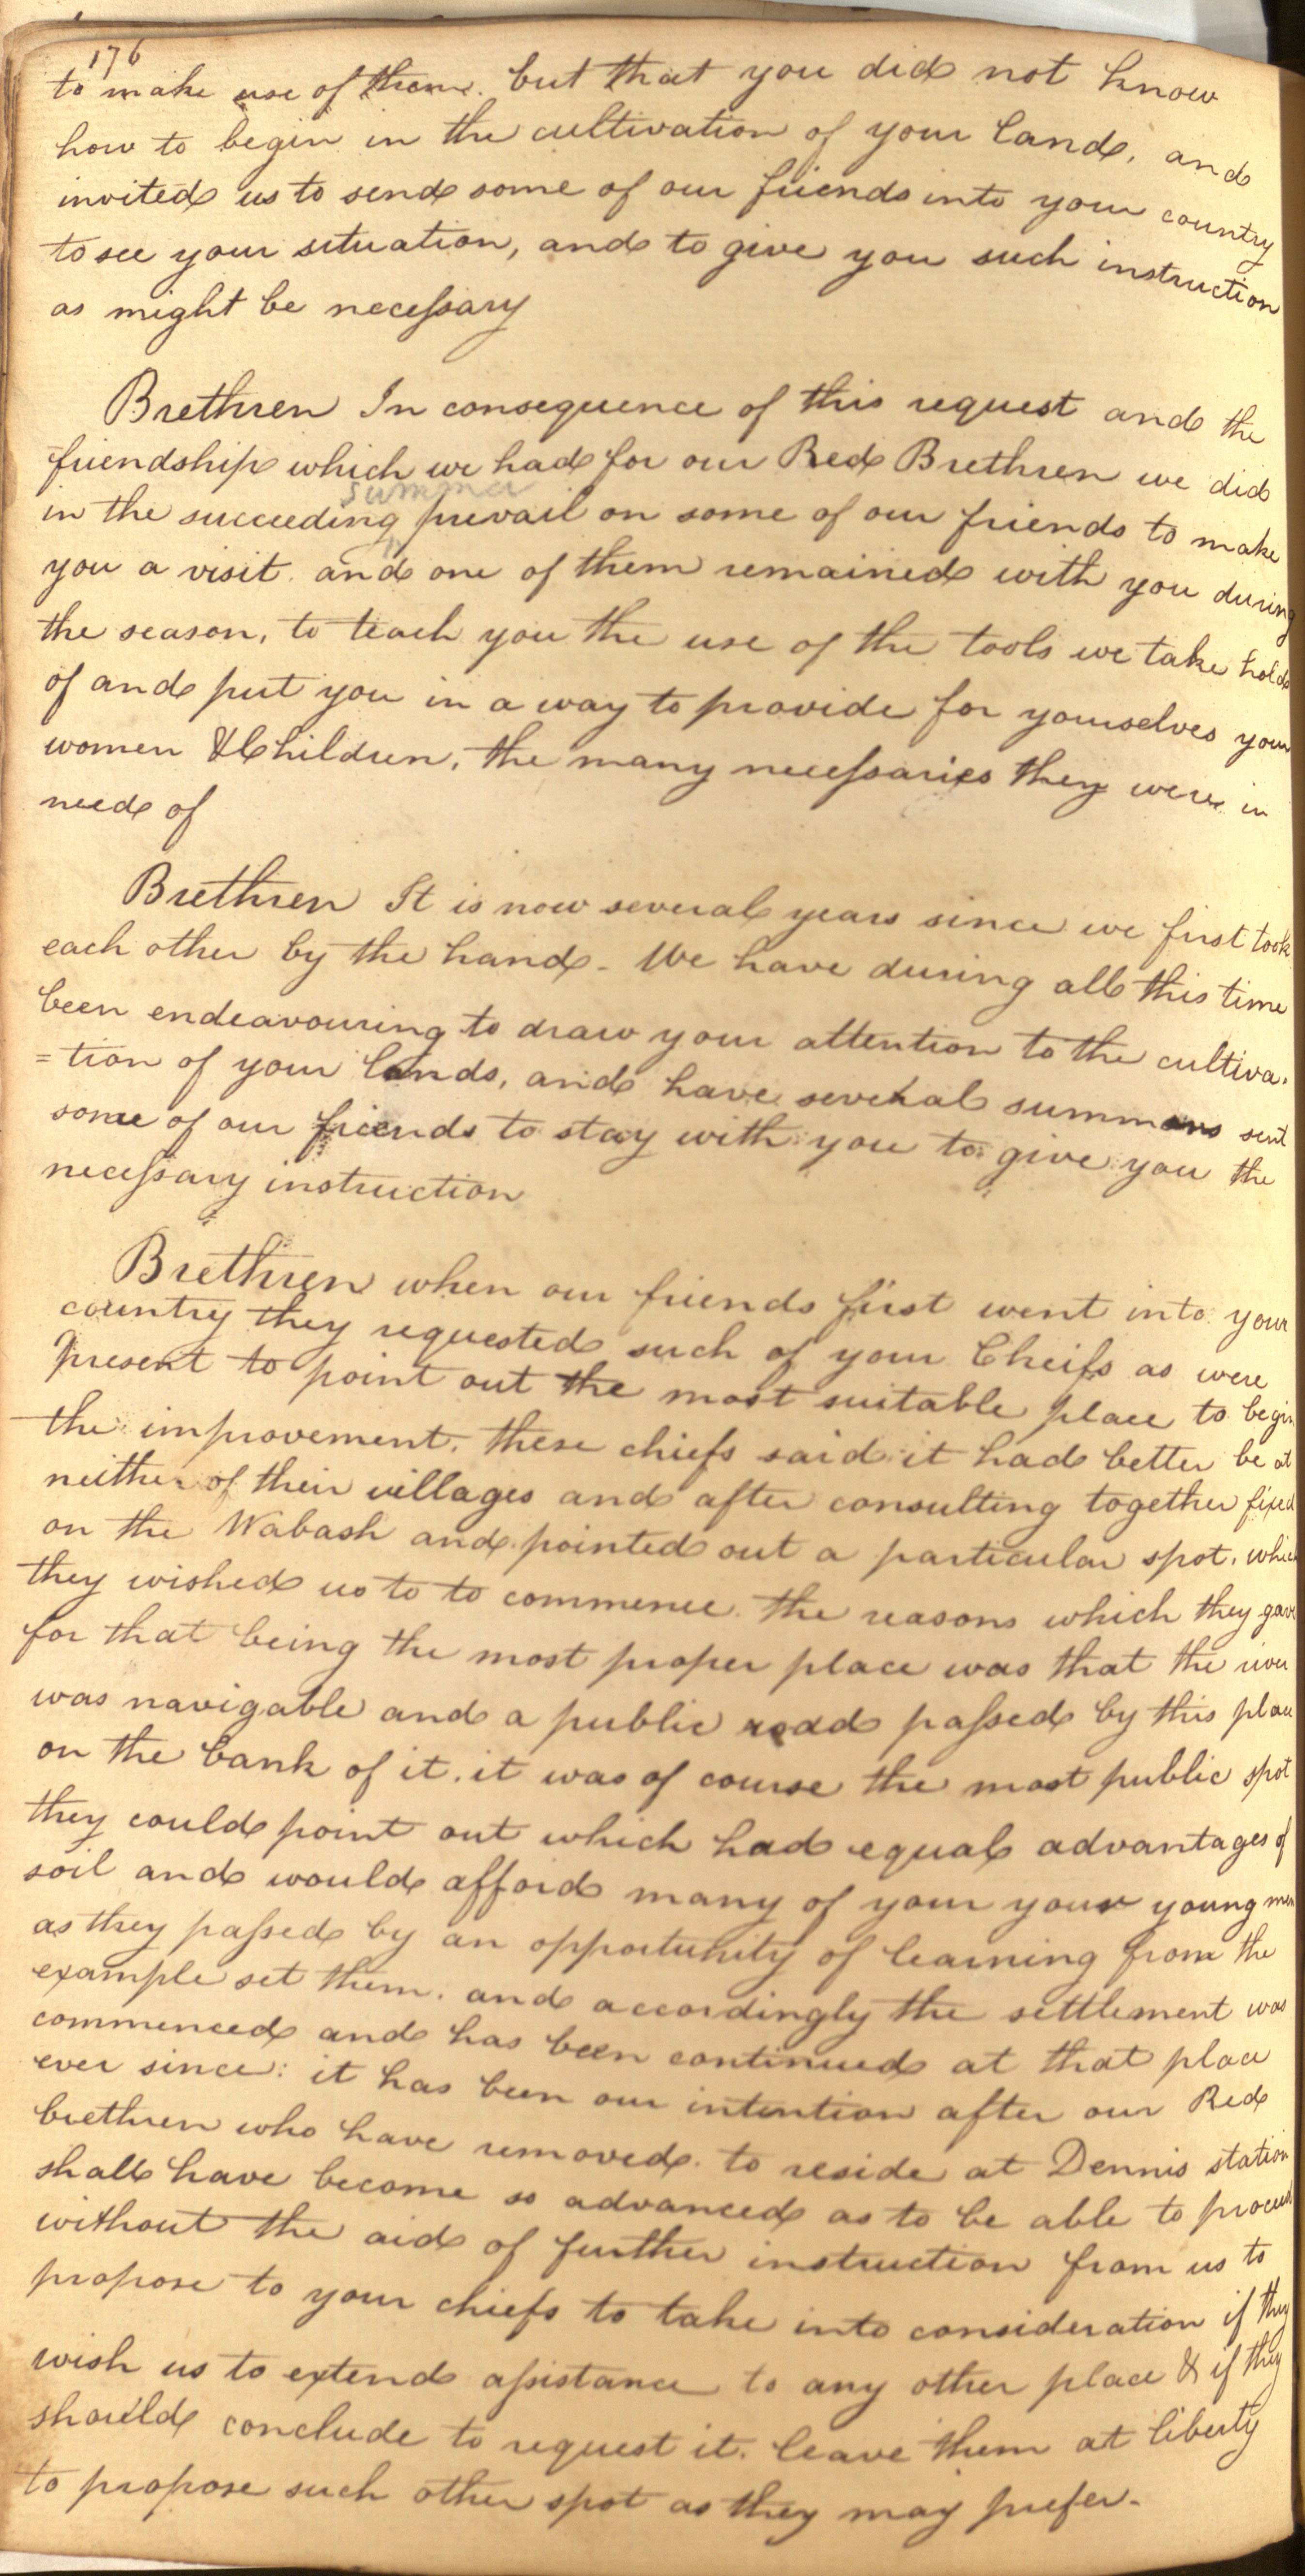 176
to make use of them. but that you did not know
how to begin in the cultivation of your land, and
invited us to send some of our friends into your country
to see your situation, and to give you such instruction
as might be necessary
Brethren In consequence of this request and the
friendship which we had for our Red Brethren we did
summer
in the succeeding prevail on some of our friends to make
you a visit. and one of them remained with you during
the season, to teach you the use of the tools we take hold
of and put you in a way to provide for yourselves your
women & Children, the many necessaries they were in
need of
Brethren It is now several years since we first took
each other by the hand - We have during all this time
been endeavouring to draw your attention to the cultiva-
=tion of your lands, and have several summers sent
some of our friends to stay with you to give you the
necessary instruction
Brethren when our friends first went into your
country they requested such of your Cheifs as were
present to point out the most suitable place to begin
the improvement. these chiefs said it had better be at
neither of their villages and after consulting together fixed
on the Wabash and pointed out a particular spot, which
they wished us to to commence. the reasons which they gave
for that being the most proper place was that the river
was navigable and a public road passed by this place
on the bank of it. it was of course the most public spot
they could point out which had equal advantages of
soil and would afford many of your your young men
as they passed by an opportunity of learning from the
example set them. and accordingly the settlement was
commenced and has been continued at that place
ever since: it has been our intention after our Red
brethren who have removed to reside at Dennis station
shall have become so advanced as to be able to proceed
without the aid of further instruction from us to
propose to your chiefs to take into consideration if they
wish us to extend assistance to any other place & if they
should conclude to request it. leave them at liberty
to propose such other spot as they may prefer.